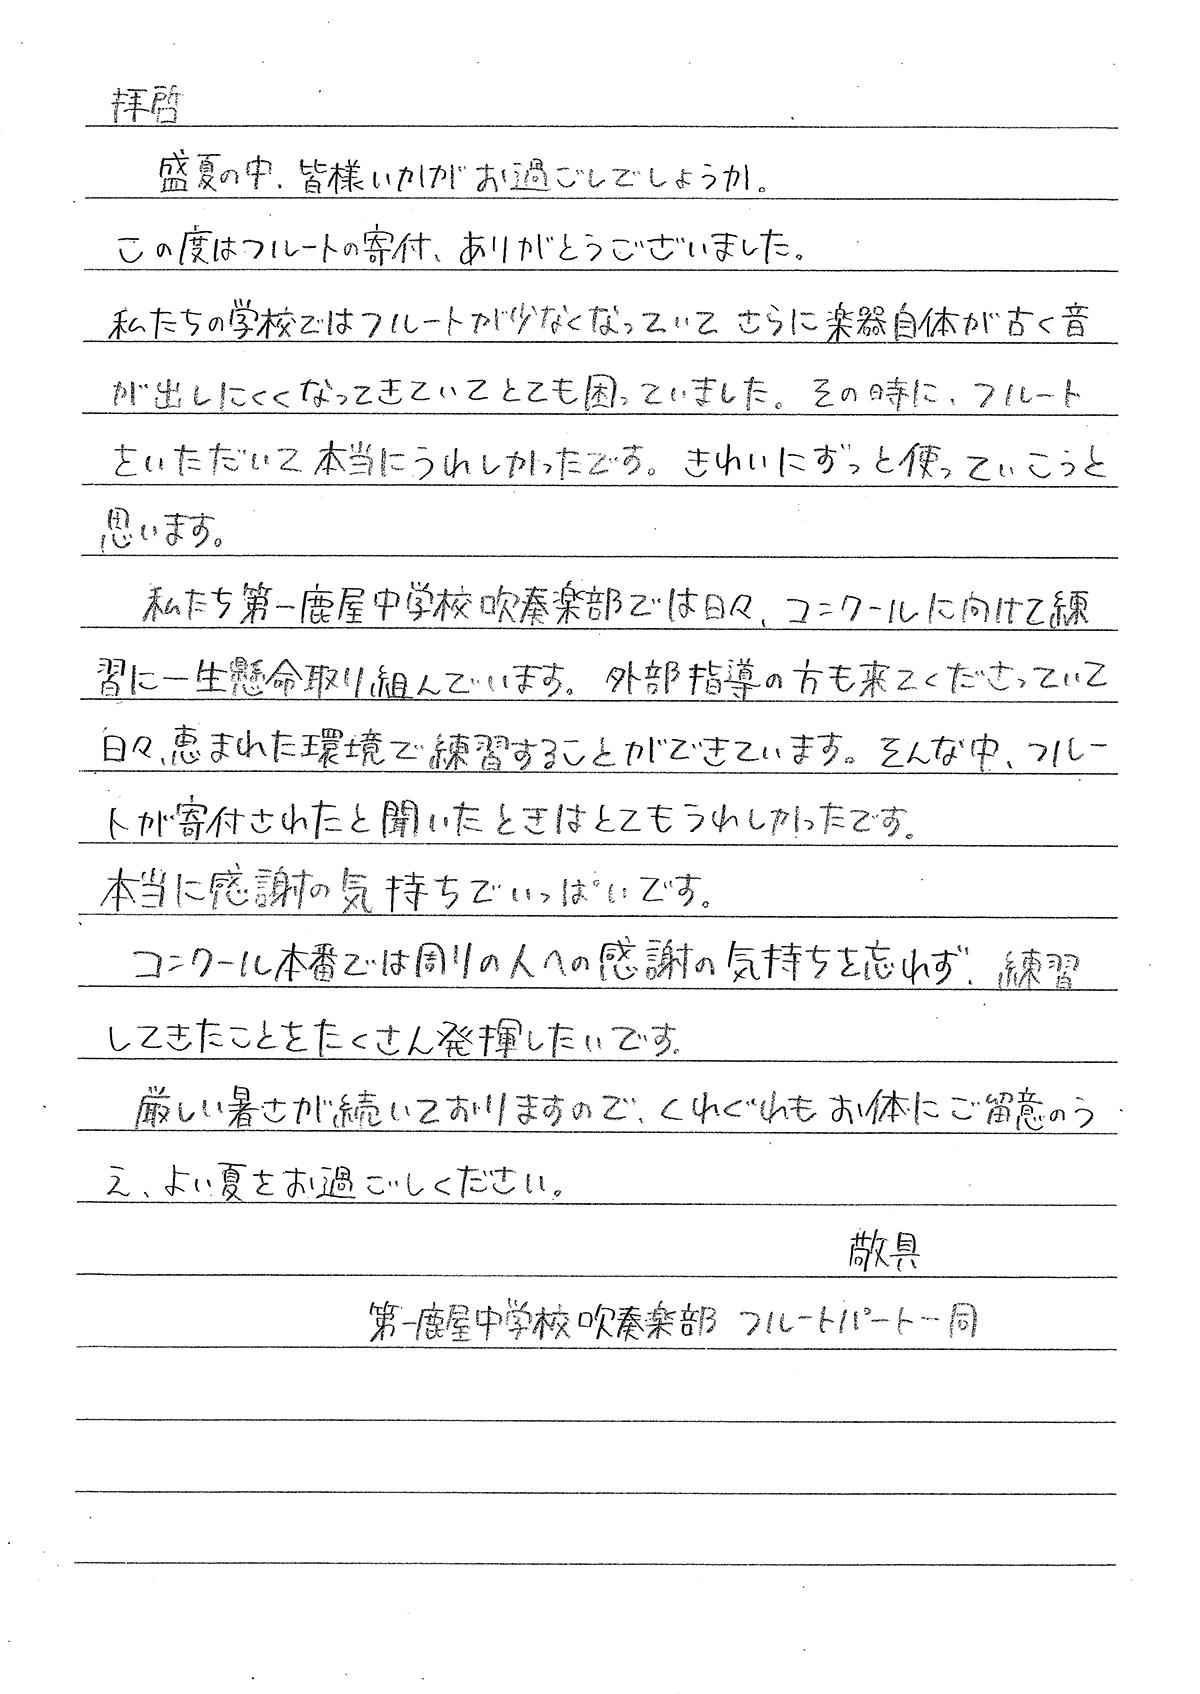 拝啓
盛夏の中、皆様いかがお過ごしでしょうか。
この度はフルートの寄付、ありがとうございました。
私たちの学校ではフルートが少なくなっていて さらに楽器自体が古く音
が出しにくくなってきていてとても困っていました。その時に、フルート
をいただいて本当にうれしかったです。きれいにずっと使っていこうと
思います。
私たち第一鹿屋中学校吹奏楽部では日々、コンクールに向けて練
習に一生懸命取り組んでいます。外部指導の方も来てくださっていて
日々、恵まれた環境で練習することができています。そんな中、フルー
トが寄付されたと聞いたときはとてもうれしかったです。
本当に感謝の気持ちでいっぱいです。
コンクール本番では周りの人への感謝の気持ちを忘れず、練習
してきたことをたくさん発揮したいです。
厳しい暑さが続いておりますので、くれぐれもお体にご留意のう
え、よい夏をお過ごしください。
敬具
第一鹿屋中学校吹奏楽部 フルートパート一同